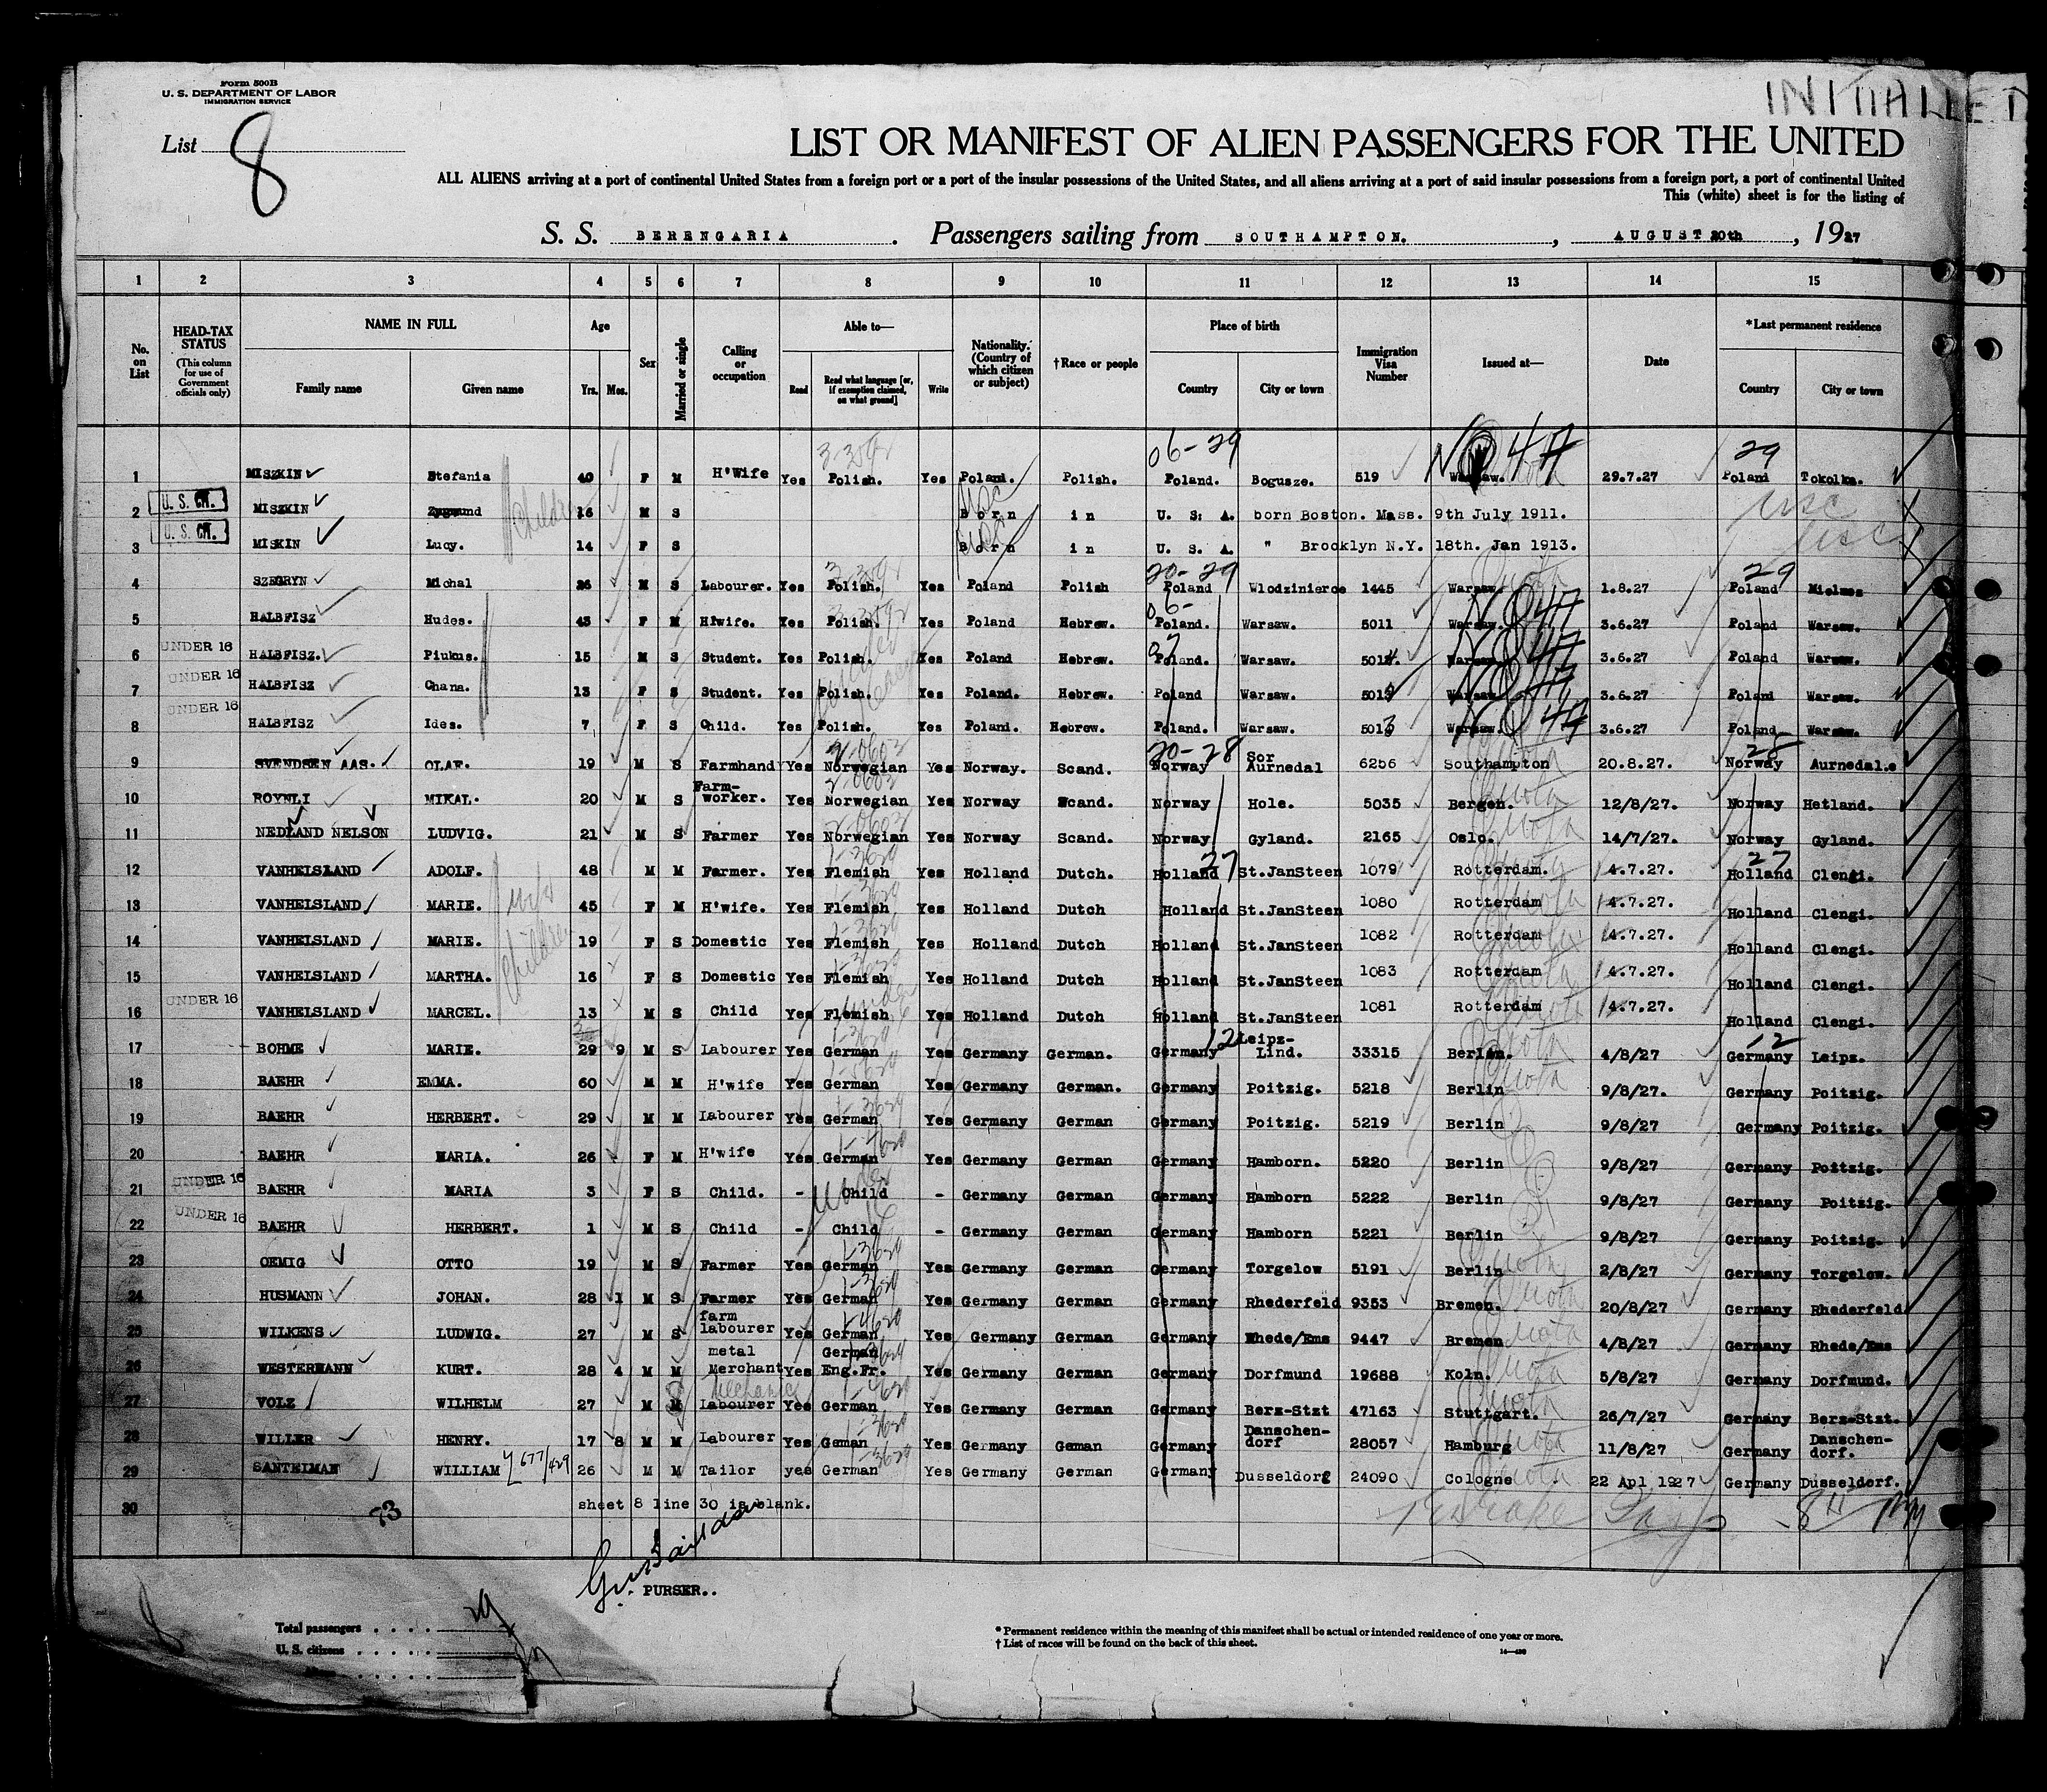 Form 500B
U. S. DEPARTMENT OF LABOR
IMMIGRATION SERVICE
INITIALLED
List 8
LIST OR MANIFEST OF ALIEN PASSENGERS FOR THE UNITED
ALL ALIENS arriving at a port of continental United States from a foreign port or a port of the insular possessions of the United States, and all aliens arriving at a port of said insular possessions from a foreign port, a port of continental United
This (white) sheet is for the listing of
S. S. BERENGARIA . Passengers sailing from SOUTHAMPTON. , AUGUST 20th , 1927
1 2 3 4 5 6 7 8 9 10 11 12 13 14 15
No. on List HEAD-TAX STATUS (This column for use of Government officials only) NAME IN FULL Family name Given name Age Yrs. Mos. Sex Married or single Calling or occupation Able to— Read Read what language [or, if exemption claimed, on what ground] Write Nationality. (Country of which citizen or subject) †Race or people Place of birth Country City or town Immigration Visa Number Issued at— Date *Last permanent residence Country City or town
06-29 NQ 47 29
1 MISZKIN Stefania 40 F M H'Wife Yes Polish. Yes Poland. Polish. Poland. Bogusze. 519 Warsaw. 29.7.27 Poland Tokolka.
2 U. S. CIT. MISZKIN Zygmund 16 M S Born in U. S. A. born Boston. Mass. 9th July 1911. USC
3 U. S. CIT. MISKIN Lucy. 14 F S Born in U. S. A. " Brooklyn N.Y. 18th. Jan 1913. USC
20-29 29
4 SZEGRYN Michal 26 M S Labourer. Yes Polish. Yes Poland Polish Poland Wlodzinierce 1445 Warsaw 1.8.27 Poland
5 HALBFISZ Hudes. 43 F M H'wife. Yes Polish. Yes Poland Hebrew. Poland. Warsaw. 5011 Warsaw. 3.6.27 Poland Warsaw.
6 UNDER 16 HALBFISZ. Piukus. 15 M S Student. Yes Polish. Yes Poland Hebrew. Poland. Warsaw. 5014 Warsaw 3.6.27 Poland Warsaw.
7 UNDER 16 HALBFISZ Chana. 13 F S Student. Yes Polish. Yes Poland. Hebrew. Poland Warsaw. Warsaw. 3.6.27 Poland Warsaw.
8 UNDER 16 HALBFISZ Ides. 7 F S Child. Yes Polish. Yes Poland. Hebrew. Poland. Warsaw. 5013 Warsaw. 3.6.27 Poland Warsaw.
20-28 28
9 SVENDSEN AAS. OLAF. 19 M S Farmhand Yes Norwegian Yes Norway. Scand. Norway Sor Aurnedal 6256 Southampton 20.8.27. Norway Aurnedal.
10 ROYNLI MIKAL. 20 M S Farm-worker. Yes Norwegian Yes Norway Scand. Norway Hole. 5035 Bergen. 12/8/27. Norway Hetland.
11 NEDLAND NELSON LUDVIG. 21 M S Farmer Yes Norwegian Yes Norway Scand. Norway Gyland. 2165 Oslo. 14/7/27. Norway Gyland.
27 27
12 VANHEISLAND ADOLF. 48 M M Farmer. Yes Flemish Yes Holland Dutch. Holland St.JanSteen 1079 Rotterdam. 14.7.27. Holland Clengi.
13 VANHEISLAND MARIE. 45 F M H'wife. Yes Flemish Yes Holland Dutch Holland St.JanSteen 1080 Rotterdam 14.7.27. Holland Clengi.
14 VANHEISLAND MARIE. 19 F S Domestic Yes Flemish Yes Holland Dutch Holland St.JanSteen 1082 Rotterdam 14.7.27. Holland Clengi.
15 VANHEISLAND MARTHA. 16 F S Domestic Yes Flemish Yes Holland Dutch Holland St.JanSteen 1083 Rotterdam 14.7.27. Holland Clengi.
16 UNDER 16 VANHEISLAND MARCEL. 13 M S Child Yes Flemish Yes Holland Dutch Holland St.JanSteen 1081 Rotterdam 14.7.27. Holland Clengi.
12 12
17 BOHME MARIE. 29 9 M S Labourer Yes German Yes Germany German. Germany Leipz-Lind. 33315 Berlin. 4/8/27 Germany Leipz.
18 BAEHR EMMA. 60 M M H'wife Yes German Yes Germany German. Germany Poitzig. 5218 Berlin 9/8/27. Germany Poitzig.
19 BAEHR HERBERT. 29 M M Labourer Yes German Yes Germany German Germany Poitzig. 5219 Berlin 9/8/27 Germany Poitzig.
20 BAEHR MARIA. 26 F M H'wife Yes German Yes Germany German Germany Hamborn. 5220 Berlin 9/8/27 Germany Poitzig.
21 UNDER 16 BAEHR MARIA 3 F S Child. - Child - Germany German Germany Hamborn 5222 Berlin 9/8/27 Germany Poitzig.
22 UNDER 16 BAEHR HERBERT. 1 M S Child - Child - Germany German Germany Hamborn 5221 Berlin 9/8/27 Germany Poitzig.
23 OEMIG OTTO 19 M S Farmer Yes German Yes Germany German Germany Torgelow 5191 Berlin 2/8/27 Germany Torgelow.
24 HUSMANN JOHAN. 28 1 M S Farmer Yes German Yes Germany German Germany Rhederfeld 9353 Bremen. 20/8/27 Germany Rhederfeld
25 WILKENS LUDWIG. 27 M S farm labourer Yes German Yes Germany German Germany Rhede/Ems 9447 Bremen 4/8/27 Germany Rhede/Ems
26 WESTERMANN KURT. 28 4 M M metal Merchant Yes German Eng.Fr. Yes Germany German Germany Dorfmund 19688 Koln. 5/8/27 Germany Dorfmund.
27 VOLZ WILHELM 27 M M Mechanic Labourer Yes German Yes Germany German Germany Berz-Stzt 47163 Stuttgart. 26/7/27 Germany Berz-Stzt.
28 WILLER HENRY. 17 8 M M Labourer Yes Geman Yes Germany Geman Germany Danschen-dorf 28057 Hamburg 11/8/27 Germany Danschen-dorf.
29 SANTEIMAN WILLIAM 26 M M Tailor yes German Yes Germany German Germany Dusseldorf 24090 Cologne 22 Apl 1927 Germany Dusseldorf.
30 sheet 8 line 30 is blank.
73
PURSER..
Total passengers
U. S. citizens
* Permanent residence within the meaning of this manifest shall be actual or intended residence of one year or more.
† List of races will be found on the back of this sheet.